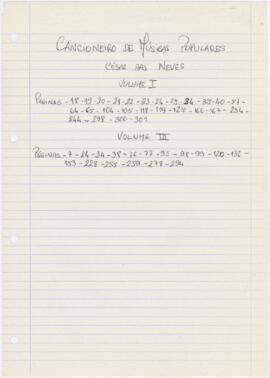 CANCIONEIRO DE MÚSICAS POPULARES
CÉSAR DAS NEVES
VOLUME I
PÁGINAS - 18 - 19 - 20 - 21 - 22 - 23 - 24 - 25 - 34 - 35 - 40 - 57 -
64 - 65 - 104 - 105 - 118 - 119 - 125 - 166 - 167 - 234 -
244 - 298 - 300 - 301
VOLUME III
PÁGINAS - 7 - 24 - 34 - 38 - 76 - 77 - 93 - 98 - 99 - 120 - 132 -
153 - 228 - 255 - 259 - 278 - 294